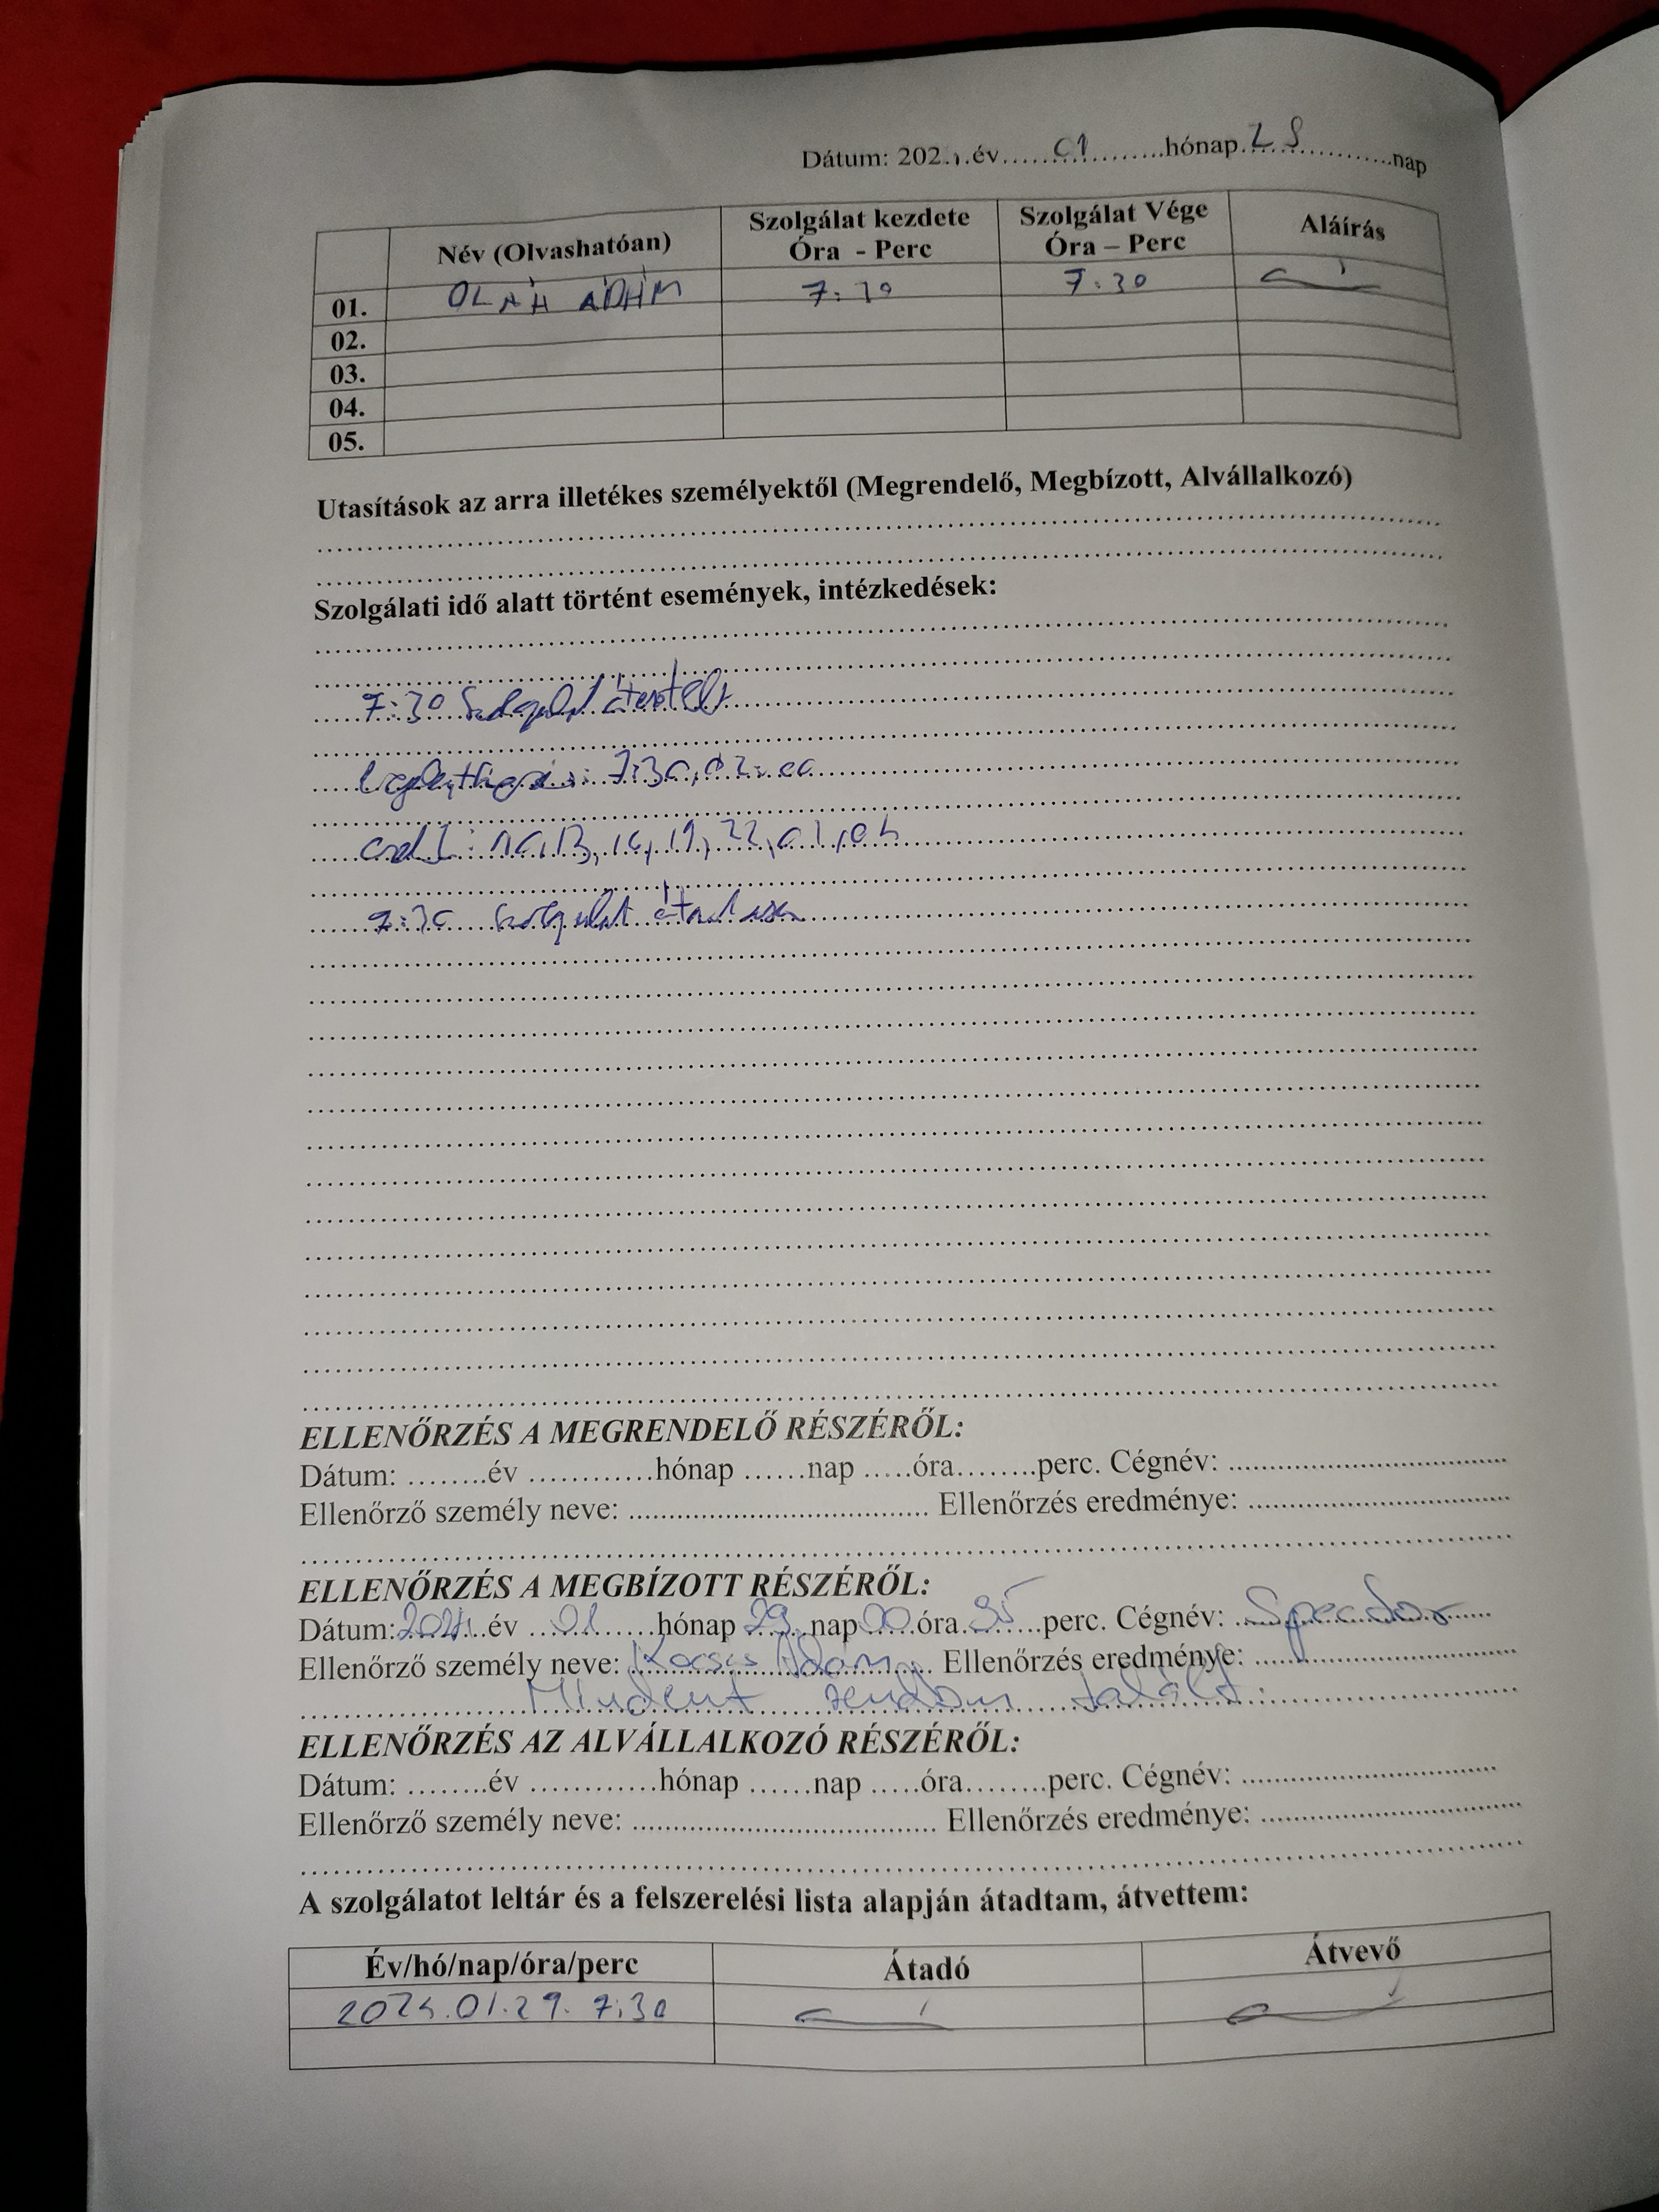 Dátum: 202...év.....01.....hónap.28.....nap
Név (Olvashatóan) Szolgálat kezdete Óra - Perc Szolgálat Vége Óra – Perc Aláírás
01. OLÁH ÁDÁM 7:30 7:30
02.
03.
04.
05.
Utasítások az arra illetékes személyektől (Megrendelő, Megbízott, Alvállalkozó)
Szolgálati idő alatt történt események, intézkedések:
7:30 Szolgálat átvétel
7:30,
13, 16, 19, 22, 01, 04
7:30 szolgálat átadása
ELLENŐRZÉS A MEGRENDELŐ RÉSZÉRŐL:
Dátum: ........év ............hónap ......nap .....óra........perc. Cégnév: ....................
Ellenőrző személy neve: .................... Ellenőrzés eredménye: ....................
ELLENŐRZÉS A MEGBÍZOTT RÉSZÉRŐL:
Dátum: 2024 év 01 hónap 29 nap 00 óra 35 perc. Cégnév:
Ellenőrző személy neve: Kocsis Ádám Ellenőrzés eredménye:
Mindent rendben talált.
ELLENŐRZÉS AZ ALVÁLLALKOZÓ RÉSZÉRŐL:
Dátum: ........év ............hónap ......nap .....óra........perc. Cégnév: ....................
Ellenőrző személy neve: .................... Ellenőrzés eredménye: ....................
A szolgálatot leltár és a felszerelési lista alapján átadtam, átvettem:
Év/hó/nap/óra/perc Átadó Átvevő
2024.01.29. 7:30